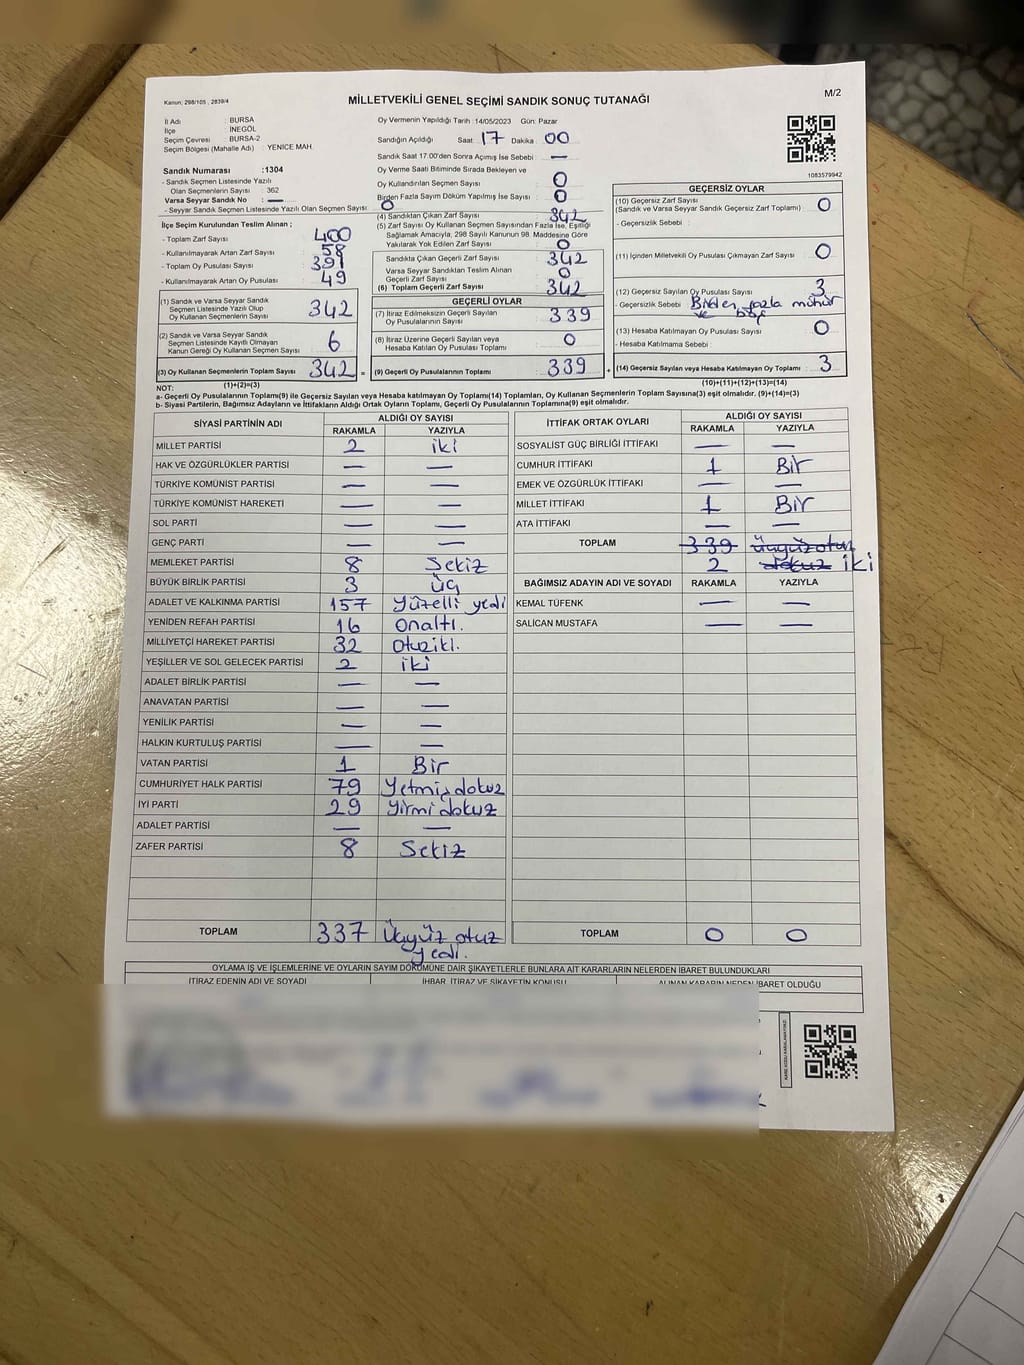 Kanun: 298/105 , 2839/4
MİLLETVEKİLİ GENEL SEÇİMİ SANDIK SONUÇ TUTANAĞI
M/2
İl Adı : BURSA
İlçe : İNEGÖL
Seçim Çevresi : BURSA-2
Seçim Bölgesi (Mahalle Adı) : YENİCE MAH.
Oy Vermenin Yapıldığı Tarih :14/05/2023 Gün: Pazar
Sandığın Açıldığı Saat :17 Dakika : 00
Sandık Saat 17.00'den Sonra Açımış İse Sebebi : —
Oy Verme Saati Bitiminde Sırada Bekleyen ve
Oy Kullandırılan Seçmen Sayısı : 0
Birden Fazla Sayım Döküm Yapılmış İse Sayısı : 0
1083579942
Sandık Numarası :1304
- Sandık Seçmen Listesinde Yazılı
Olan Seçmenlerin Sayısı : 362
Varsa Seyyar Sandık No : —
- Seyyar Sandık Seçmen Listesinde Yazılı Olan Seçmen Sayısı : 0
İlçe Seçim Kurulundan Teslim Alınan ;
- Toplam Zarf Sayısı : 400
- Kullanılmayarak Artan Zarf Sayısı : 58
- Toplam Oy Pusulası Sayısı : 391
- Kullanılmayarak Artan Oy Pusulası : 49
(1) Sandık ve Varsa Seyyar Sandık
Seçmen Listesinde Yazılı Olup
Oy Kullanan Seçmenlerin Sayısı : 342
(2) Sandık ve Varsa Seyyar Sandık
Seçmen Listesinde Kayıtlı Olmayan
Kanun Gereği Oy Kullanan Seçmen Sayısı : 6
(3) Oy Kullanan Seçmenlerin Toplam Sayısı : 342 =
(1)+(2)=(3)
(4) Sandıktan Çıkan Zarf Sayısı : 342
(5) Zarf Sayısı Oy Kullanan Seçmen Sayısından Fazla İse, Eşitliği
Sağlamak Amacıyla, 298 Sayılı Kanunun 98. Maddesine Göre
Yakılarak Yok Edilen Zarf Sayısı : 0
Sandıkta Çıkan Geçerli Zarf Sayısı : 342
Varsa Seyyar Sandıktan Teslim Alınan
Geçerli Zarf Sayısı : 0
(6) Toplam Geçerli Zarf Sayısı : 342
GEÇERLİ OYLAR
(7) İtiraz Edilmeksizin Geçerli Sayılan
Oy Pusulalarının Sayısı : 339
(8) İtiraz Üzerine Geçerli Sayılan veya
Hesaba Katılan Oy Pusulası Toplamı : 0
(9) Geçerli Oy Pusulalarının Toplamı : 339 +
GEÇERSİZ OYLAR
(10) Geçersiz Zarf Sayısı
(Sandık ve Varsa Seyyar Sandık Geçersiz Zarf Toplamı) : 0
- Geçersizlik Sebebi :
(11) İçinden Milletvekili Oy Pusulası Çıkmayan Zarf Sayısı : 0
(12) Geçersiz Sayılan Oy Pusulası Sayısı : 3
- Geçersizlik Sebebi : Birden fazla mühür
ve boş
(13) Hesaba Katılmayan Oy Pusulası Sayısı : 0
- Hesaba Katılmama Sebebi :
(14) Geçersiz Sayılan veya Hesaba Katılmayan Oy Toplamı : 3
(10)+(11)+(12)+(13)=(14)
NOT:
a- Geçerli Oy Pusulalarının Toplamı(9) ile Geçersiz Sayılan veya Hesaba Katılmayan Oy Toplamı(14) Toplamları, Oy Kullanan Seçmenlerin Toplam Sayısına(3) eşit olmalıdır. (9)+(14)=(3)
b- Siyasi Partilerin, Bağımsız Adayların ve İttifakların Aldığı Ortak Oyların Toplamı, Geçerli Oy Pusulalarının Toplamına(9) eşit olmalıdır.
SİYASİ PARTİNİN ADI ALDIĞI OY SAYISI
RAKAMLA YAZIYLA
MİLLET PARTİSİ 2 iki
HAK VE ÖZGÜRLÜKLER PARTİSİ — —
TÜRKİYE KOMÜNİST PARTİSİ — —
TÜRKİYE KOMÜNİST HAREKETİ — —
SOL PARTİ — —
GENÇ PARTİ — —
MEMLEKET PARTİSİ 8 Sekiz
BÜYÜK BİRLİK PARTİSİ 3 üç
ADALET VE KALKINMA PARTİSİ 157 Yüzelli yedi
YENİDEN REFAH PARTİSİ 16 onaltı.
MİLLİYETÇİ HAREKET PARTİSİ 32 Otuziki.
YEŞİLLER VE SOL GELECEK PARTİSİ 2 iki
ADALET BİRLİK PARTİSİ — —
ANAVATAN PARTİSİ — —
YENİLİK PARTİSİ — —
HALKIN KURTULUŞ PARTİSİ — —
VATAN PARTİSİ 1 Bir
CUMHURİYET HALK PARTİSİ 79 Yetmiş dokuz
İYİ PARTİ 29 Yirmi dokuz
ADALET PARTİSİ — —
ZAFER PARTİSİ 8 Sekiz
TOPLAM 337 Üçyüz otuz
yedi.
İTTİFAK ORTAK OYLARI ALDIĞI OY SAYISI
RAKAMLA YAZIYLA
SOSYALİST GÜÇ BİRLİĞİ İTTİFAKI — —
CUMHUR İTTİFAKI 1 Bir
EMEK VE ÖZGÜRLÜK İTTİFAKI — —
MİLLET İTTİFAKI 1 Bir
ATA İTTİFAKI — —
TOPLAM 339 üçyüz otuz
2 dokuz iki
BAĞIMSIZ ADAYIN ADI VE SOYADI RAKAMLA YAZIYLA
KEMAL TÜFENK — —
SALİCAN MUSTAFA — —
TOPLAM 0 0
OYLAMA İŞ VE İŞLEMLERİNE VE OYLARIN SAYIM DÖKÜMÜNE DAİR ŞİKAYETLERLE BUNLARA AİT KARARLARIN NELERDEN İBARET BULUNDUKLARI
İTİRAZ EDENİN ADI VE SOYADI İHBAR, İTİRAZ VE ŞİKAYETİN KONUSU ALINAN KARARIN NEDEN İBARET OLDUĞU